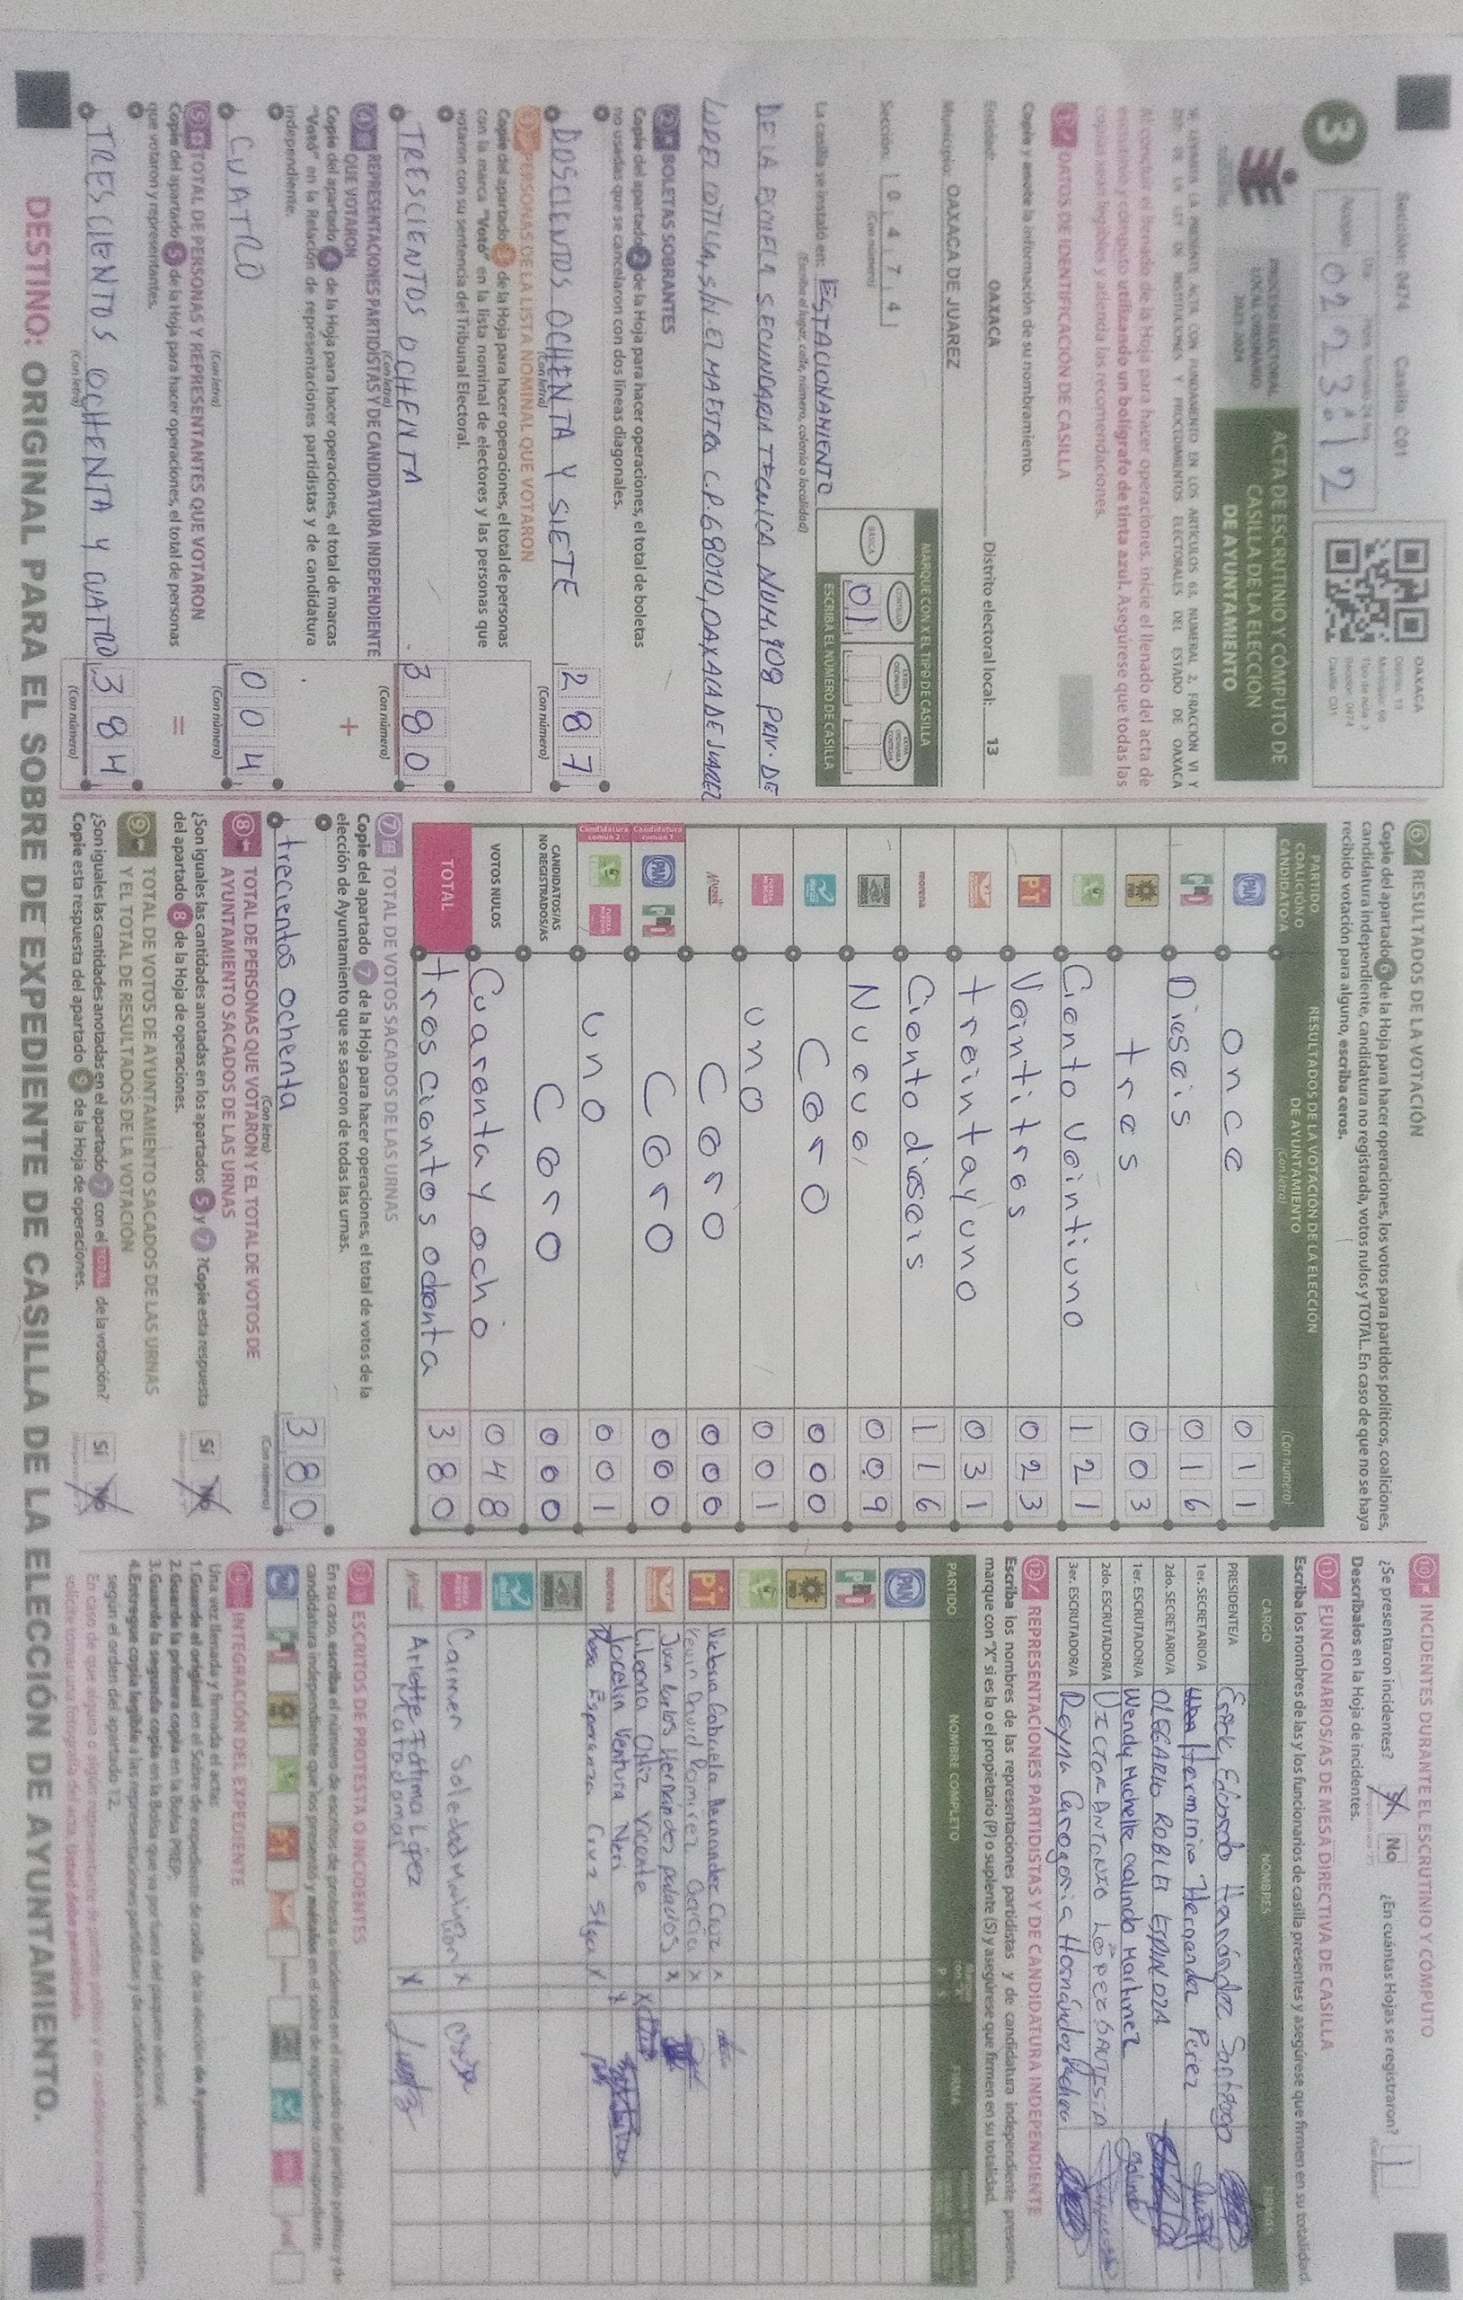 Sección: 0474 Casilla: C01
Acopio
022 23:12
OAXACA
Distrito: 13
Sección: 0474
Casilla: C01
3
PROCESO ELECTORAL
LOCAL ORDINARIO
2023-2024
ACTA DE ESCRUTINIO Y CÓMPUTO DE
CASILLA DE LA ELECCIÓN
DE AYUNTAMIENTO
SE LEVANTA LA PRESENTE ACTA CON FUNDAMENTO EN LOS ARTÍCULOS 63, NUMERAL 2, FRACCIÓN VI Y
DE LA LEY DE INSTITUCIONES Y PROCEDIMIENTOS ELECTORALES DEL ESTADO DE OAXACA
Al concluir el llenado de la Hoja para hacer operaciones, inicie el llenado del acta de
escrutinio y cómputo utilizando un bolígrafo de tinta azul. Asegúrese que todas las
copias sean legibles y atienda las recomendaciones.
1 DATOS DE IDENTIFICACIÓN DE CASILLA
Copie y anote la información de su nombramiento.
Entidad: OAXACA Distrito electoral local: 13
Municipio: OAXACA DE JUAREZ
Sección: 0 4 7 4
(Con número)
MARQUE CON X EL TIPO DE CASILLA
BÁSICA
CONTIGUA
ESCRIBA EL NÚMERO DE CASILLA
01
La casilla se instaló en: ESTACIONAMIENTO
(Escriba el lugar, calle, número, colonia o localidad)
DE LA ESCUELA SECUNDARIA TECNICA NUM. 908 PRIV. DE
LOPEZ COTILLA, S/N. El MAESTRO C.P. 68010, OAXACA DE JUAREZ
2 BOLETAS SOBRANTES
Copie del apartado 2 de la Hoja para hacer operaciones, el total de boletas
no usadas que se cancelaron con dos líneas diagonales.
DOSCIENTOS OCHENTA Y SIETE 287
(Con letra) (Con número)
3 PERSONAS DE LA LISTA NOMINAL QUE VOTARON
Copie del apartado 3 de la Hoja para hacer operaciones, el total de personas
con la marca "Votó" en la lista nominal de electores y las personas que
votaron con su sentencia del Tribunal Electoral.
TRESCIENTOS OCHENTA 380
(Con letra) (Con número)
4 REPRESENTACIONES PARTIDISTAS Y DE CANDIDATURA INDEPENDIENTE
QUE VOTARON
+
Copie del apartado 4 de la Hoja para hacer operaciones, el total de marcas
"Votó" en la Relación de representaciones partidistas y de candidatura
independiente.
CUATRO 004
(Con letra) (Con número)
5 TOTAL DE PERSONAS Y REPRESENTANTES QUE VOTARON
=
Copie del apartado 5 de la Hoja para hacer operaciones, el total de personas
que votaron y representantes.
TRESCIENTOS OCHENTA Y CUATRO 384
(Con letra) (Con número)
6 RESULTADOS DE LA VOTACIÓN
Copie del apartado 6 de la Hoja para hacer operaciones, los votos para partidos políticos, coaliciones,
candidatura independiente, candidatura no registrada, votos nulos y TOTAL. En caso de que no se haya
recibido votación para alguno, escriba ceros.
PARTIDO, COALICIÓN O CANDIDATO/A
RESULTADOS DE LA VOTACIÓN DE LA ELECCIÓN
DE AYUNTAMIENTO
(Con letra) (Con número)
PAN once 011
PRI Dieseis 016
PRD tres 003
Ciento veintiuno 121
PT Veintitres 023
treintayuno 031
morena Ciento dieseis 116
Nueve 009
Cero 000
uno 001
Cero 000
Candidatura común 1 PAN PRI Cero 000
Candidatura común 2 uno 001
CANDIDATOS/AS
NO REGISTRADOS/AS Cero 000
VOTOS NULOS Cuarenta y ocho 048
TOTAL trescientos ochenta 380
7 TOTAL DE VOTOS SACADOS DE LAS URNAS
Copie del apartado 7 de la Hoja para hacer operaciones, el total de votos de la
elección de Ayuntamiento que se sacaron de todas las urnas.
trecientos ochenta 380
(Con letra) (Con número)
8 TOTAL DE PERSONAS QUE VOTARON Y EL TOTAL DE VOTOS DE
AYUNTAMIENTO SACADOS DE LAS URNAS
¿Son iguales las cantidades anotadas en los apartados 5 y 7? Copie esta respuesta
del apartado 8 de la Hoja de operaciones.
Sí No
9 TOTAL DE VOTOS DE AYUNTAMIENTO SACADOS DE LAS URNAS
Y EL TOTAL DE RESULTADOS DE LA VOTACIÓN
¿Son iguales las cantidades anotadas en el apartado 7 con el TOTAL de la votación?
Copie esta respuesta del apartado 9 de la Hoja de operaciones.
Sí No
10 INCIDENTES DURANTE EL ESCRUTINIO Y CÓMPUTO
¿Se presentaron incidentes? Sí No ¿En cuántas Hojas se registraron? 1
Descríbalos en la Hoja de incidentes.
11 FUNCIONARIOS/AS DE MESA DIRECTIVA DE CASILLA
Escriba los nombres de las y los funcionarios de casilla presentes y asegúrese que firmen en su totalidad.
CARGO NOMBRES FIRMAS
PRESIDENTE/A Erick Eduardo Hernández Santiago
1er. SECRETARIO/A Herminio Hernandez Perez
2do. SECRETARIO/A OLEGARIO ROBLES ESPINOZA
1er. ESCRUTADOR/A Wendy Michelle Galindo Martinez
2do. ESCRUTADOR/A VICTOR ANTONIO LÓPEZ BAUTISTA
3er. ESCRUTADOR/A Reyna Gregoria Hernández Pacheco
12 REPRESENTACIONES PARTIDISTAS Y DE CANDIDATURA INDEPENDIENTE
Escriba los nombres de las representaciones partidistas y de candidatura independiente presentes,
marque con "X" si es la o el propietario (P) o suplente (S) y asegúrese que firmen en su totalidad.
PARTIDO NOMBRE COMPLETO P S FIRMA
PAN
PRI
PRD
PT Victoria Gabriela Hernandez Cruz X
Kevin David Ramirez Garcia X
Juan Carlos Hernandez palacios X
Liliana Ortiz Vicente X
morena Jocelin Ventura Neri X
Rosa Esperanza Cruz X
Carmen Soledad X
Arlette Fatima López Matadamas X
13 ESCRITOS DE PROTESTA O INCIDENTES
En su caso, escriba el número de escritos de protesta o incidentes en el recuadro del partido político y de
candidatura independiente que los presentó y métalos en el sobre de expediente correspondiente.
14 INTEGRACIÓN DEL EXPEDIENTE
Una vez llenada y firmada el acta:
1. Guarde el original en el Sobre de expediente de casilla de la elección de Ayuntamiento.
2. Guarde la primera copia en la Bolsa PREP.
3. Guarde la segunda copia en la Bolsa que va por fuera del paquete electoral.
4. Entregue copia legible a las representaciones partidistas y de candidatura independiente presentes,
según el orden del apartado 12.
DESTINO: ORIGINAL PARA EL SOBRE DE EXPEDIENTE DE CASILLA DE LA ELECCIÓN DE AYUNTAMIENTO.